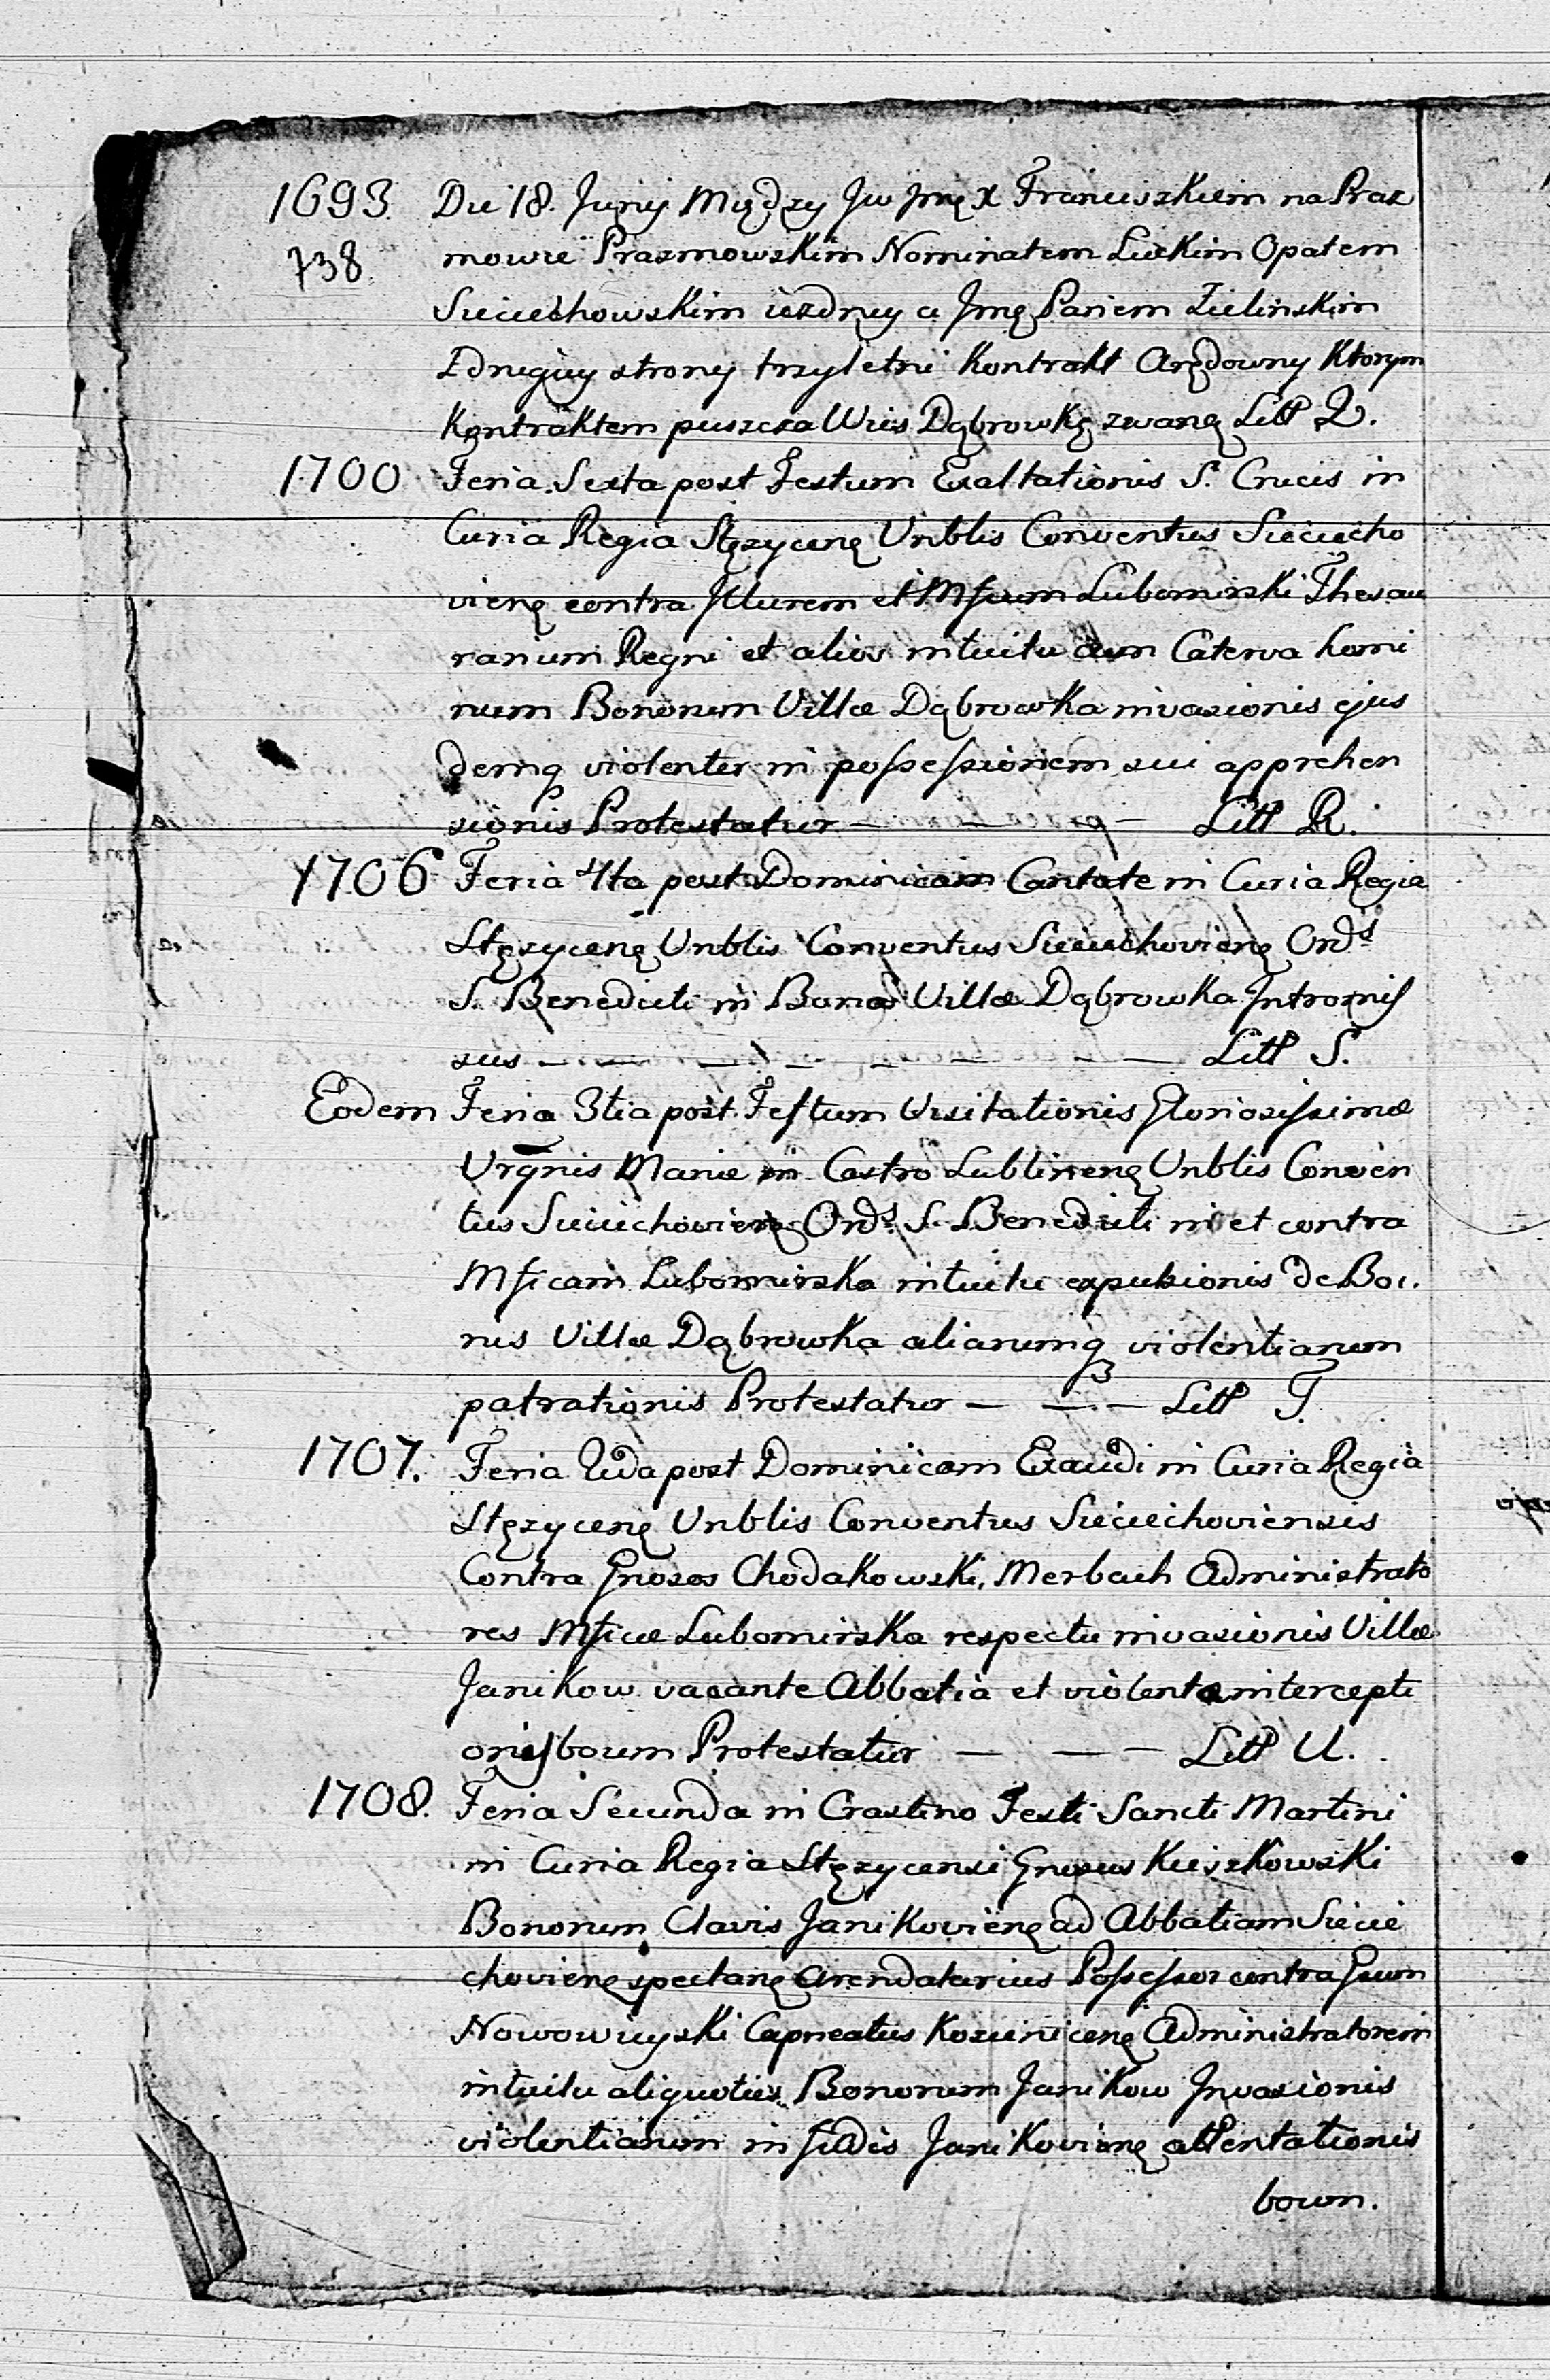 1693. Die 18. Junij Między Jw Jmę X Franciszkiem na Praz
738 mowie Prazmowskim Nominatem Łuckim Opatem
Sieciechowskim iezdney a Jmę Panem Zielinskim
Zdrugiey strony trzyletni Kontrakt Arędowny Ktorym
Kontraktem puszcza Wies Dąbrowkę zwaną Litt Q.
1700 Feria Sexta post Festum Exaltationis S. Crucis in
Curia Regia Stęzycenę Vnblis Conventus Sieciecho
vienę contra Jllurem et Mficum Lubomirski Thesau
rarium Regni et alios intuitu cum Caterva homi
num Bonorum Villæ Dąbrowka invasionis ejus
demq violenter in possessionem sui apprehen
sionis Protestatur — — — Litt R.
1706 Feria 4ta post Dominicam Cantate in Curia Regia
Stęzycenę Vnblis Conventus Sieciechovienę Ords
S. Benedicti in Bona Villæ Dąbrowka Intromis
sus — — — — — — Litt S.
Eodem Feria 3tia post Festum Visitationis Gloriosissimæ
Vrgnis Mariæ in Castro Lublinenę Vnblis Conven
tus Sieciechovienę Ords S. Benedicti in et contra
Mficam Lubomirska intuitu expulsionis de Bo
nis Villæ Dąbrowka aliarumq violentiarum
patrationis Protestatur — — — Litt T
1707. Feria 2da post Dominicam Exaudi in Curia Regia
Stęzycenę Vnblis Conventus Sieciechoviensis
Contra Gnosos Chodakowski, Merbach Administrato
res Mficæ Lubomirska respectu invasionis Villæ
Janikow vacante Abbatia et violenta intercepti
onis boum Protestatur — — — Litt U.
1708. Feria Secunda in Crastino Festi Sancti Martini
in Curia Regia Stęzycensi Gnosus Kieszkowski
Bonorum Clavis Janikovienę ad Abbatiam Siecie
chovienę spectanę Arendatarius Possessor contra Gsum
Nowowieyski Capneatus Kozienicenę Administratorem
intuitu aliquoties Bonorum Janikow Invasionis
violentiarum in Janikovienę attentationis
boum.